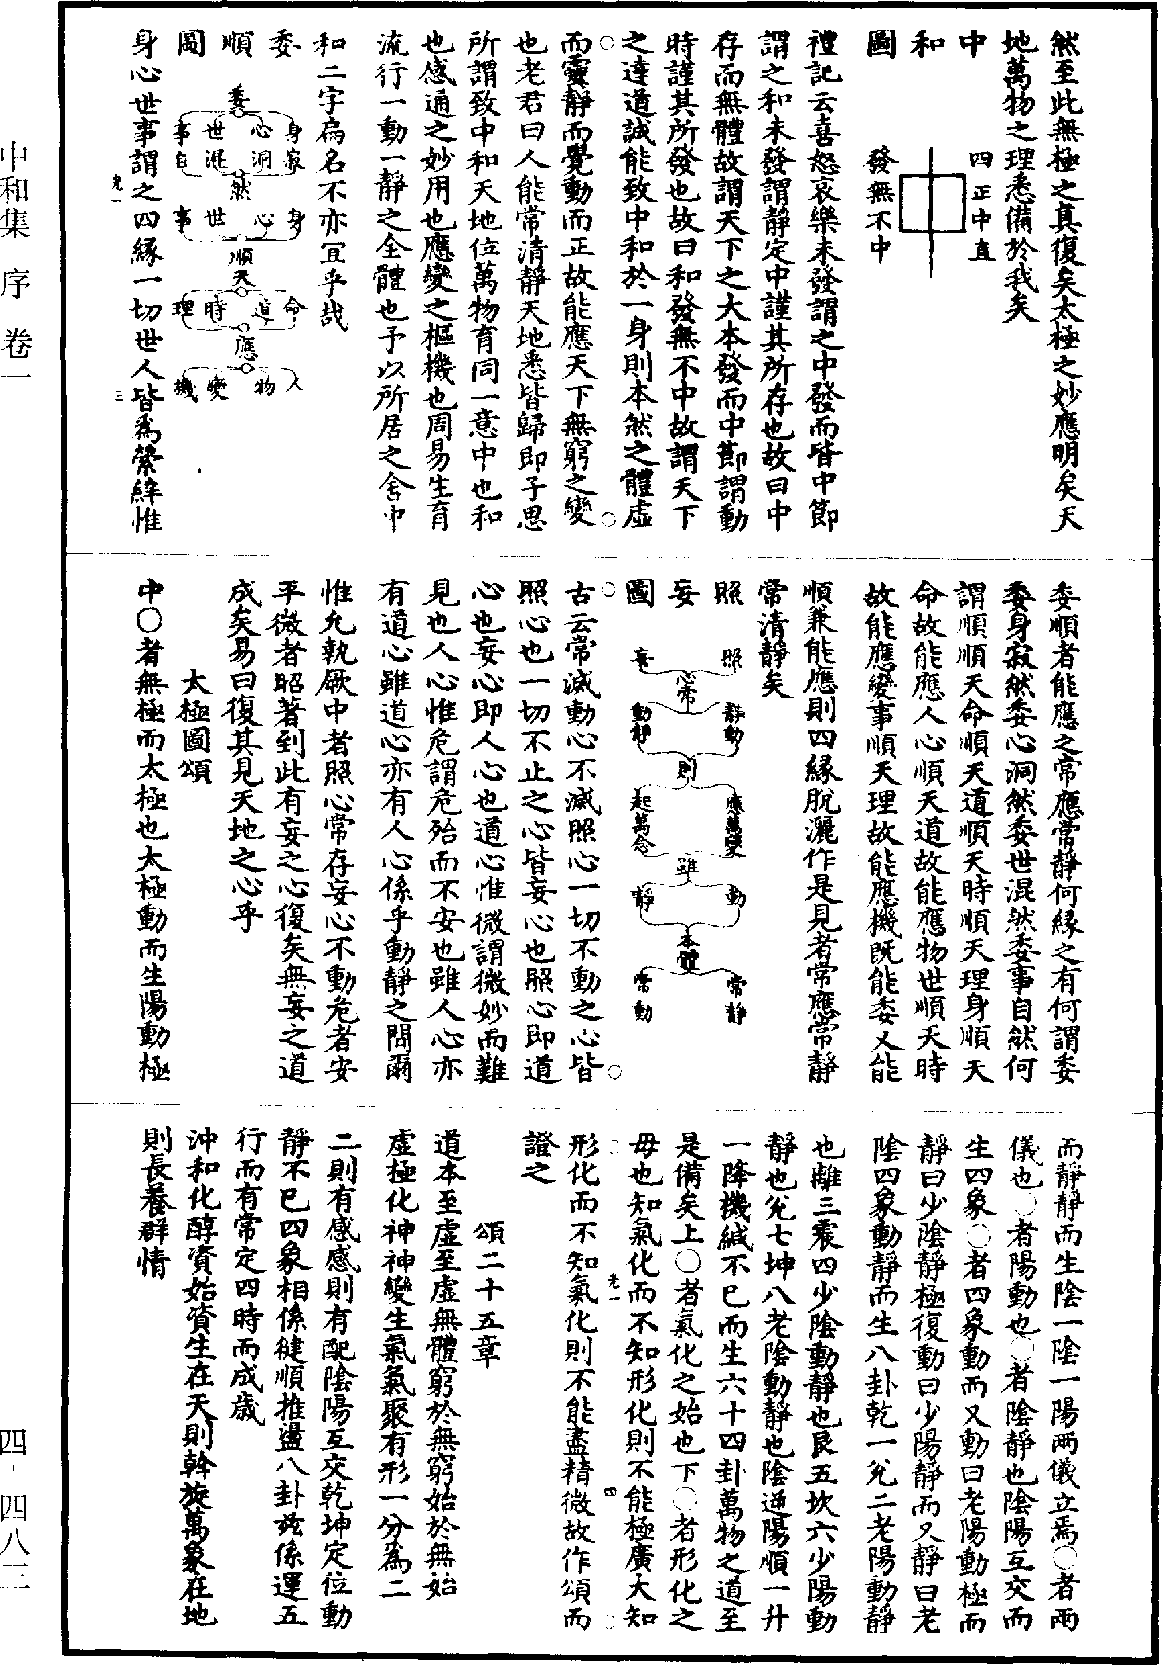 然至此無極之真復矣太極之妙應明矣天
地萬物之理悉備於我矣
中和圖
四正中直
發無不中
禮記云喜怒哀樂未發謂之中發而皆中節
謂之和未發謂靜定中謹其所存也故曰中
存而無體故謂天下之大本發而中節謂動
時謹其所發也故曰和發無不中故謂天下
之達道誠能致中和於一身則本然之體虛
而靈靜而覺動而正故能應天下無窮之變
也老君曰人能常清靜天地悉皆歸即子思
所謂致中和天地位萬物育同一意中也和
也感通之妙用也應變之樞機也周易生育
流行一動一靜之全體也予以所居之舍中
和二字扁名不亦宜乎哉
委順圖
委
身寂 心洞 世混 事自
然
身 心 世 事
順天
命 道 時 理
應
人 物 變 機
身心世事謂之四緣一切世人皆為縈絆惟
委順者能應之常應常靜何緣之有何謂委
委身寂然委心洞然委世混然委事自然何
謂順順天命順天道順天時順天理身順天
命故能應人心順天道故能應物世順天時
故能應變事順天理故能應機既能委又能
順兼能應則四緣脫灑作是見者常應常靜
常清靜矣
照妄圖
照 妄
心常
靜動 動靜
則
應萬變 起萬念
雖
動 靜
本體
常靜 常動
古云常滅動心不滅照心一切不動之心皆
照心也一切不止之心皆妄心也照心即道
心也妄心即人心也道心惟微謂微妙而難
見也人心惟危謂危殆而不安也雖人心亦
有道心雖道心亦有人心係乎動靜之間爾
惟允執厥中者照心常存妄心不動危者安
平微者昭著到此有妄之心復矣無妄之道
成矣易曰復其見天地之心乎
太極圖頌
中○者無極而太極也太極動而生陽動極
而靜靜而生陰一陰一陽兩儀立焉○者兩
儀也○者陽動也○者陰靜也陰陽互交而
生四象○者四象動而又動曰老陽動極而
靜曰少陰靜極復動曰少陽靜而又靜曰老
陰四象動靜而生八卦乾一兌二老陽動靜
也離三震四少陰動靜也艮五坎六少陽動
靜也兌七坤八老陰動靜也陰逆陽順一升
一降機緘不已而生六十四卦萬物之道至
是備矣上○者氣化之始也下○者形化之
母也知氣化而不知形化則不能極廣大知
形化而不知氣化則不能盡精微故作頌而
證之
頌二十五章
道本至虛至虛無體窮於無窮始於無始
虛極化神神變生氣氣聚有形一分為二
二則有感感則有配陰陽互交乾坤定位動
靜不已四象相係健順推盪八卦茲係運五
行而有常定四時而成歲
沖和化醇資始資生在天則斡旋萬象在地
則長養群情
中和集 序 卷一
四-四八二